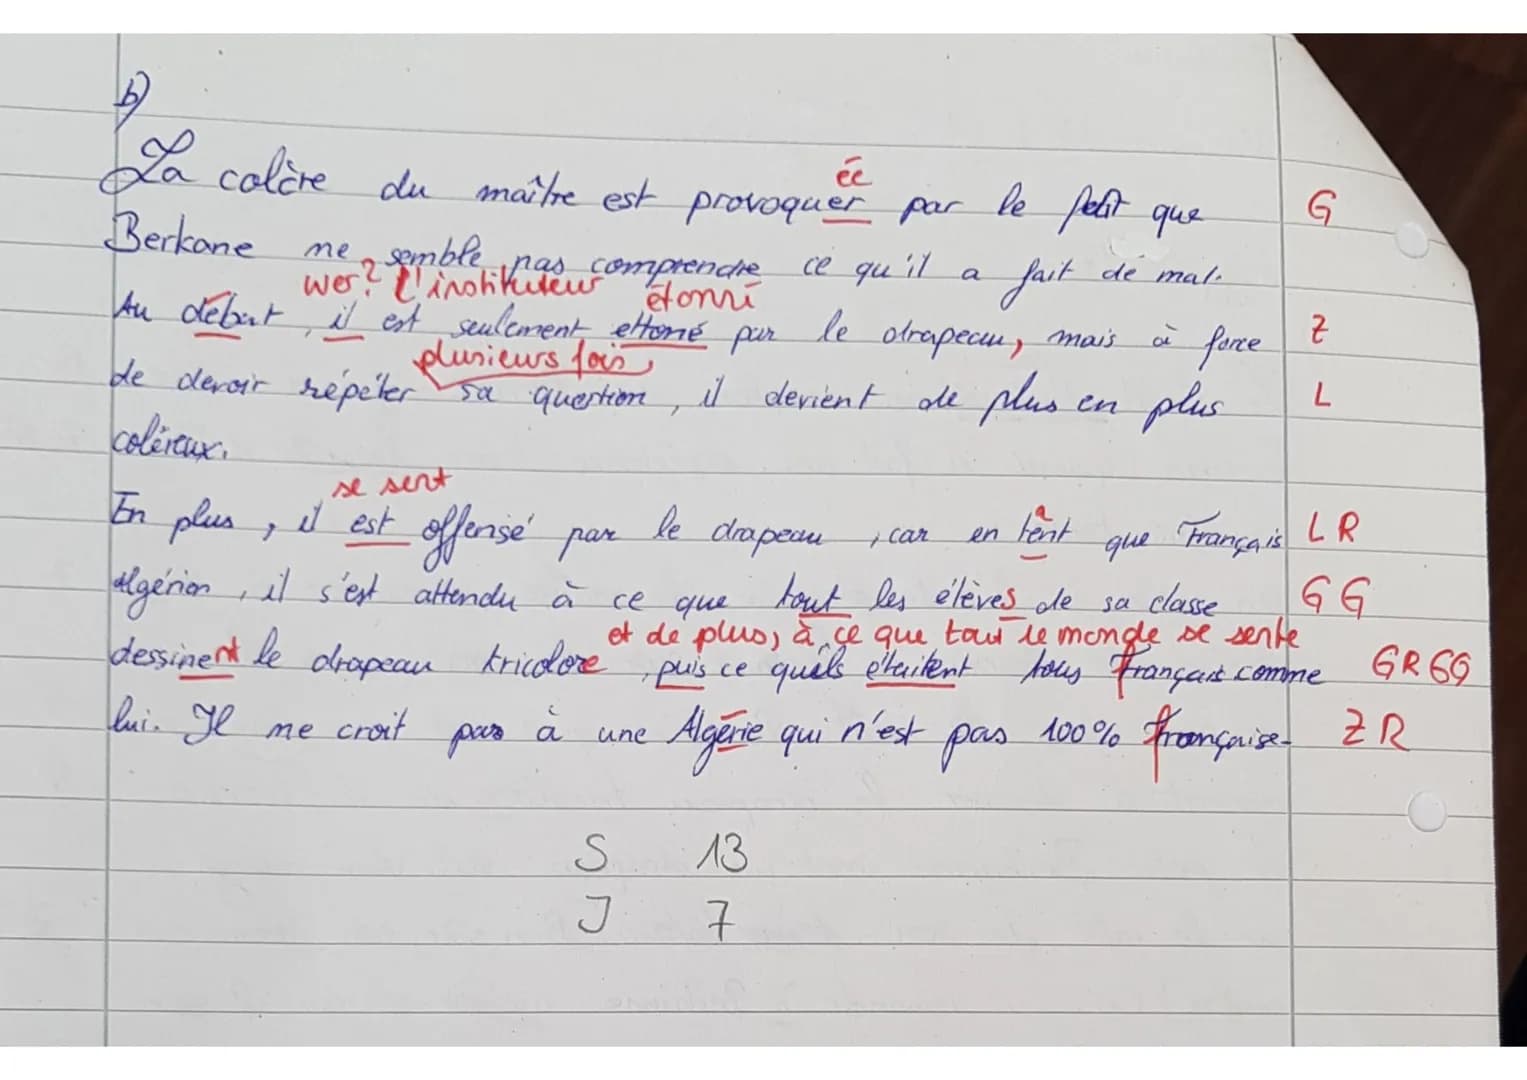 b)
ée
La colère du maître est provoquer par le fait que G
Berkane ne semble pas comprendre ce qu'il a fait de mal.
wer? L'instituteur étonné
Au début, il est seulement ettoné par le drapeau, mais à force Z
plusieurs fois
de devoir répéter sa question, il devient de plus en plus L
coléreux.
se sent
a
En plus, il est offensé par le drapeau, car en tent que Français LR
algérien, il s'est attendu à ce que tout les élèves de sa classe GG
et de plus, à ce que tout le monde se sente
dessinent le drapeau tricolore, puis ce quels étaitent tous français comme GRGG
lui. Il ne croit pas à une Algérie qui n'est pas 100% française. ZR
S 13
J 7